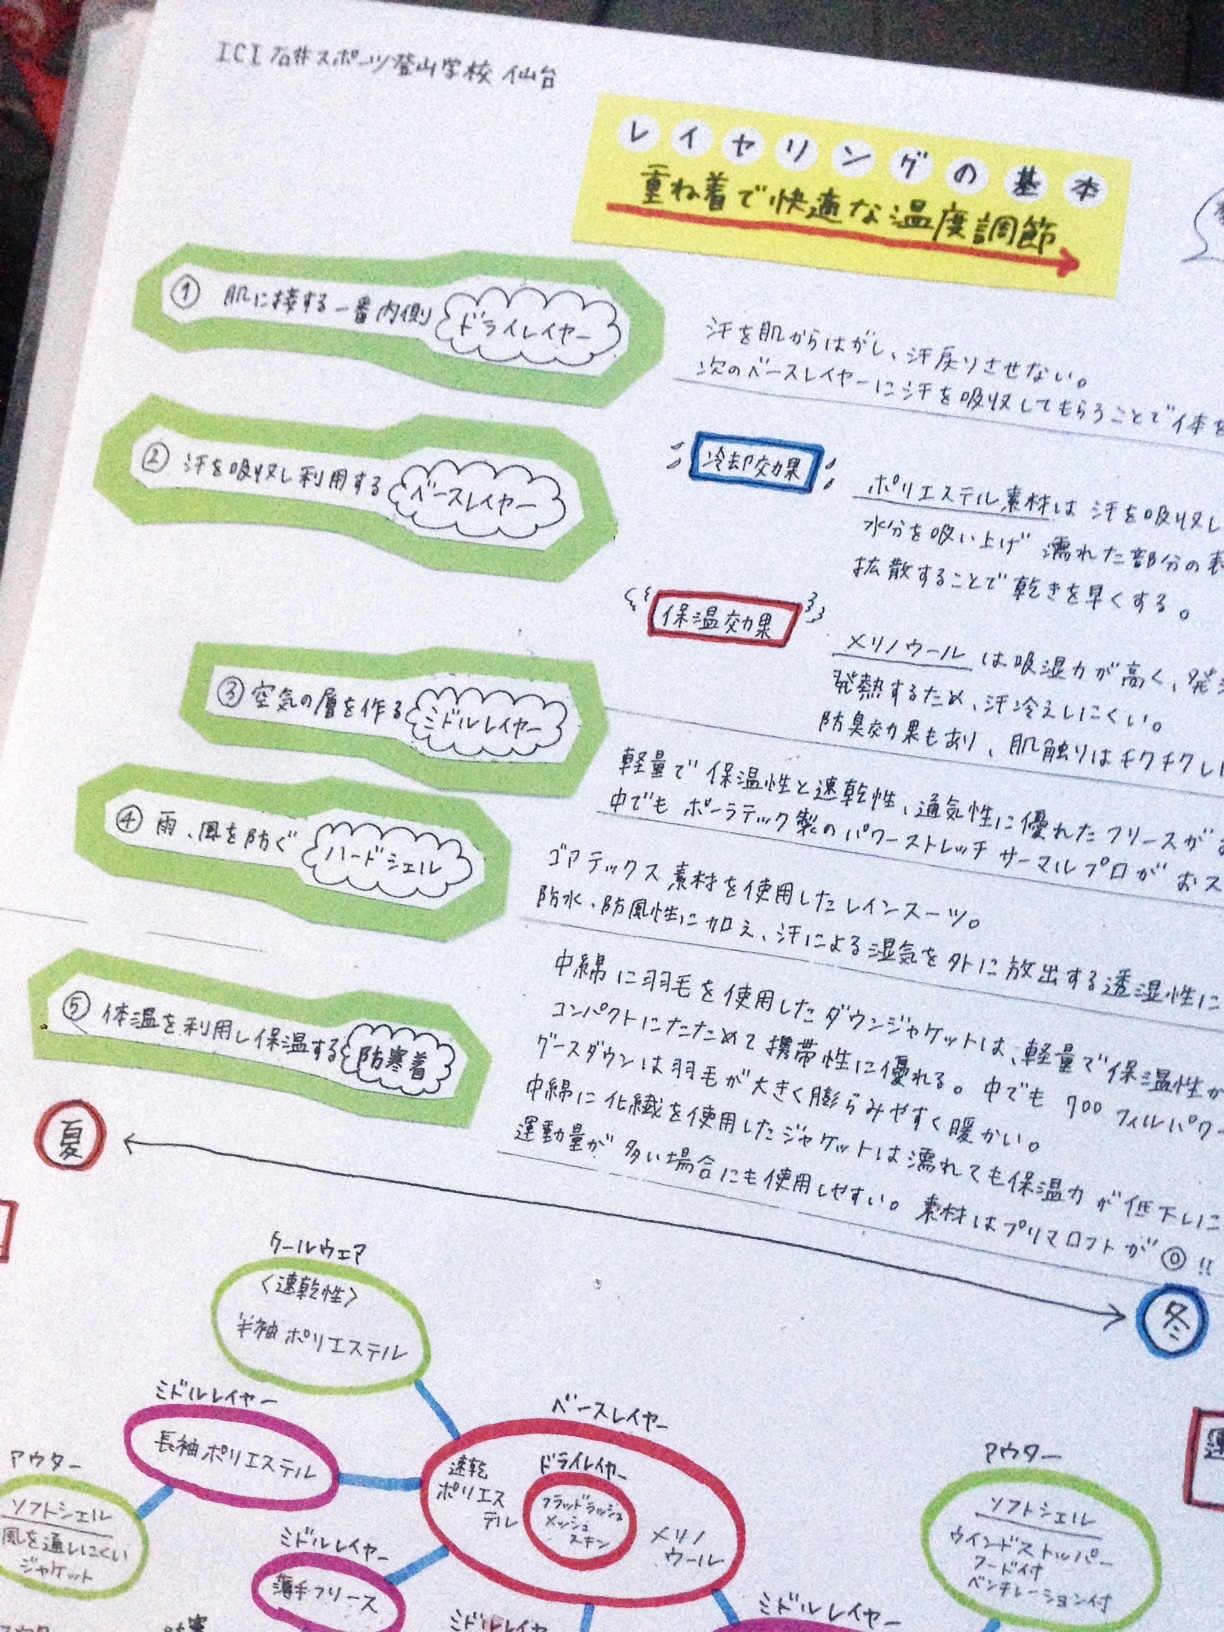 ICI石井スポーツ登山学校 仙台
レイヤリングの基本
重ね着で快適な温度調節
① 肌に接する一番内側 ドライレイヤー
汗を肌からはがし、汗戻りさせない。
次のベースレイヤーに汗を吸収してもらうことで体
② 汗を吸収し利用する ベースレイヤー
冷却効果
ポリエステル素材は汗を吸収し
水分を吸い上げ 濡れた部分の表
拡散することで乾きを早くする。
保温効果
メリノウールは吸湿力が高く、発
発熱するため、汗冷えしにくい。
防臭効果もあり、肌触りはチクチクし
③ 空気の層を作る ミドルレイヤー
軽量で保温性と速乾性、通気性に優れたフリースが
中でもポーラテック製のパワーストレッチサーマルプロがおス
④ 雨、風を防ぐ ハードシェル
ゴアテックス素材を使用したレインスーツ。
防水、防風性に加え、汗による湿気を外に放出する透湿性に
⑤ 体温を利用し保温する 防寒着
中綿に羽毛を使用したダウンジャケットは、軽量で保温性が
コンパクトにたためて携帯性に優れる。中でも700フィルパワー
グースダウンは羽毛が大きく膨らみやすく暖かい。
中綿に化繊を使用したジャケットは濡れても保温力が低下しに
運動量が多い場合にも使用しやすい。素材はプリマロフトが◎!!
夏
冬
クールウェア
〈速乾性〉
半袖ポリエステル
ミドルレイヤー
長袖ポリエステル
アウター
ソフトシェル
風を通しにくい
ジャケット
ベースレイヤー
速乾
ポリエス
テル
ドライレイヤー
フラッドラッシュ
メッシュ
スキン
メリノ
ウール
ミドルレイヤー
薄手フリース
アウター
ソフトシェル
ウインドストッパー
フード付
ベンチレーション付
ミドルレイヤー
ミドルレイヤー